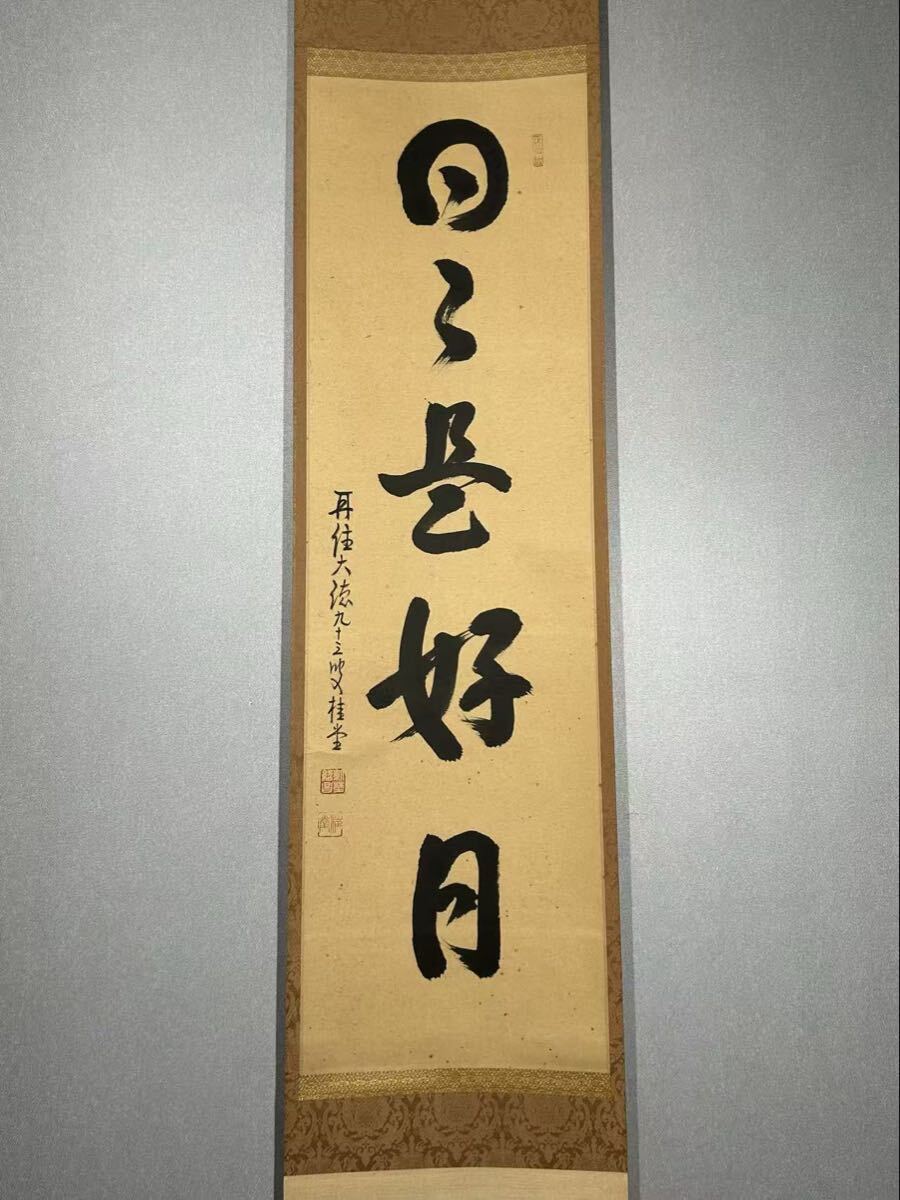 日々是好日
再住大徳九十三叟桂堂